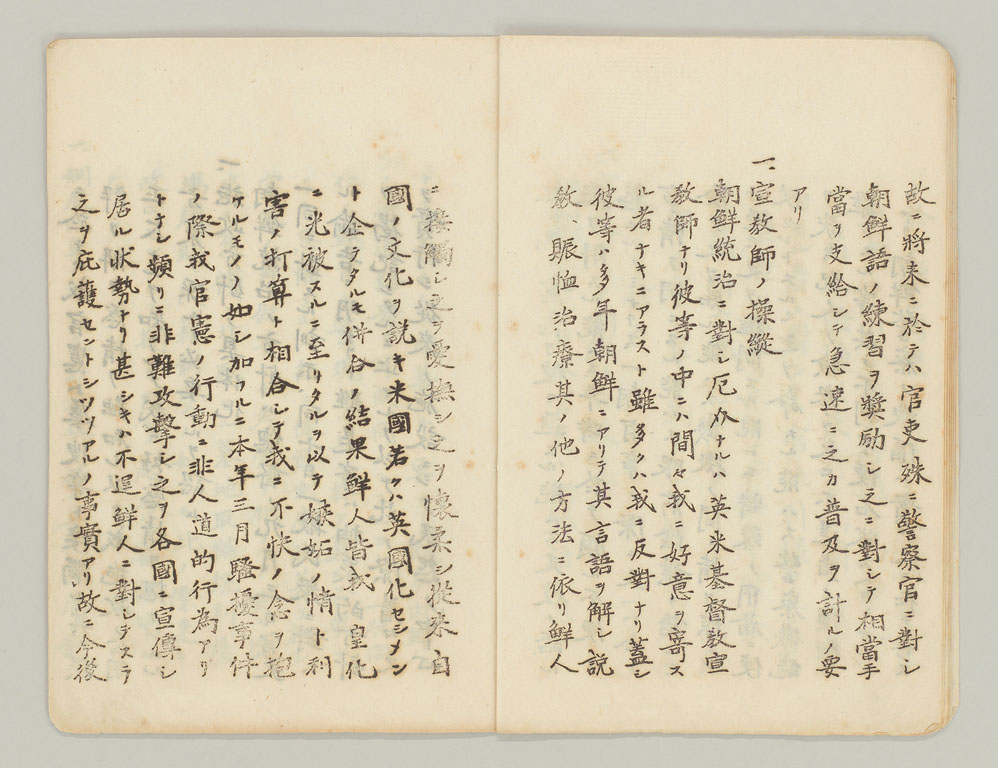 故ニ將来ニ於テハ官吏殊ニ警察官ニ對シ
朝鮮語ノ練習ヲ奬励シ之ニ對シテ相當手
當ヲ支給シテ急速ニ之カ普及ヲ計ルノ要
アリ
一、宣教師ノ操縦
朝鮮統治ニ對シ厄介ナルハ英米基督教宣
教師ナリ彼等ノ中ニハ間々我ニ好意ヲ寄ス
ル者ナキニアラスト雖多クハ我ニ反對ナリ蓋シ
彼等ハ多年朝鮮ニアリテ其言語ヲ解シ説
教、賑恤治療其ノ他ノ方法ニ依リ鮮人
ニ接觸シ之ヲ愛撫シ之ヲ懐柔シ従来自
國ノ文化ヲ説キ米國若クハ英國化セシメン
ト企ヲタルモ併合ノ結果鮮人皆我　皇化
ニ光被スルニ至リタルヲ以テ嫉妬ノ情ト利
害ノ打算ト相合シテ我ニ不快ノ念ヲ抱
ケルモノノ如シ加フルニ本年三月騒擾事件
ノ際我官憲ノ行動ニ非人道的行為アリ
トナシ頻リニ非難攻撃シ之ヲ各國ニ宣傳シ
居ル状勢ナリ甚シキハ不逞鮮人ニ對シテスラ
之ヲ庇護セントシツツアルノ事實アリ故ニ今後